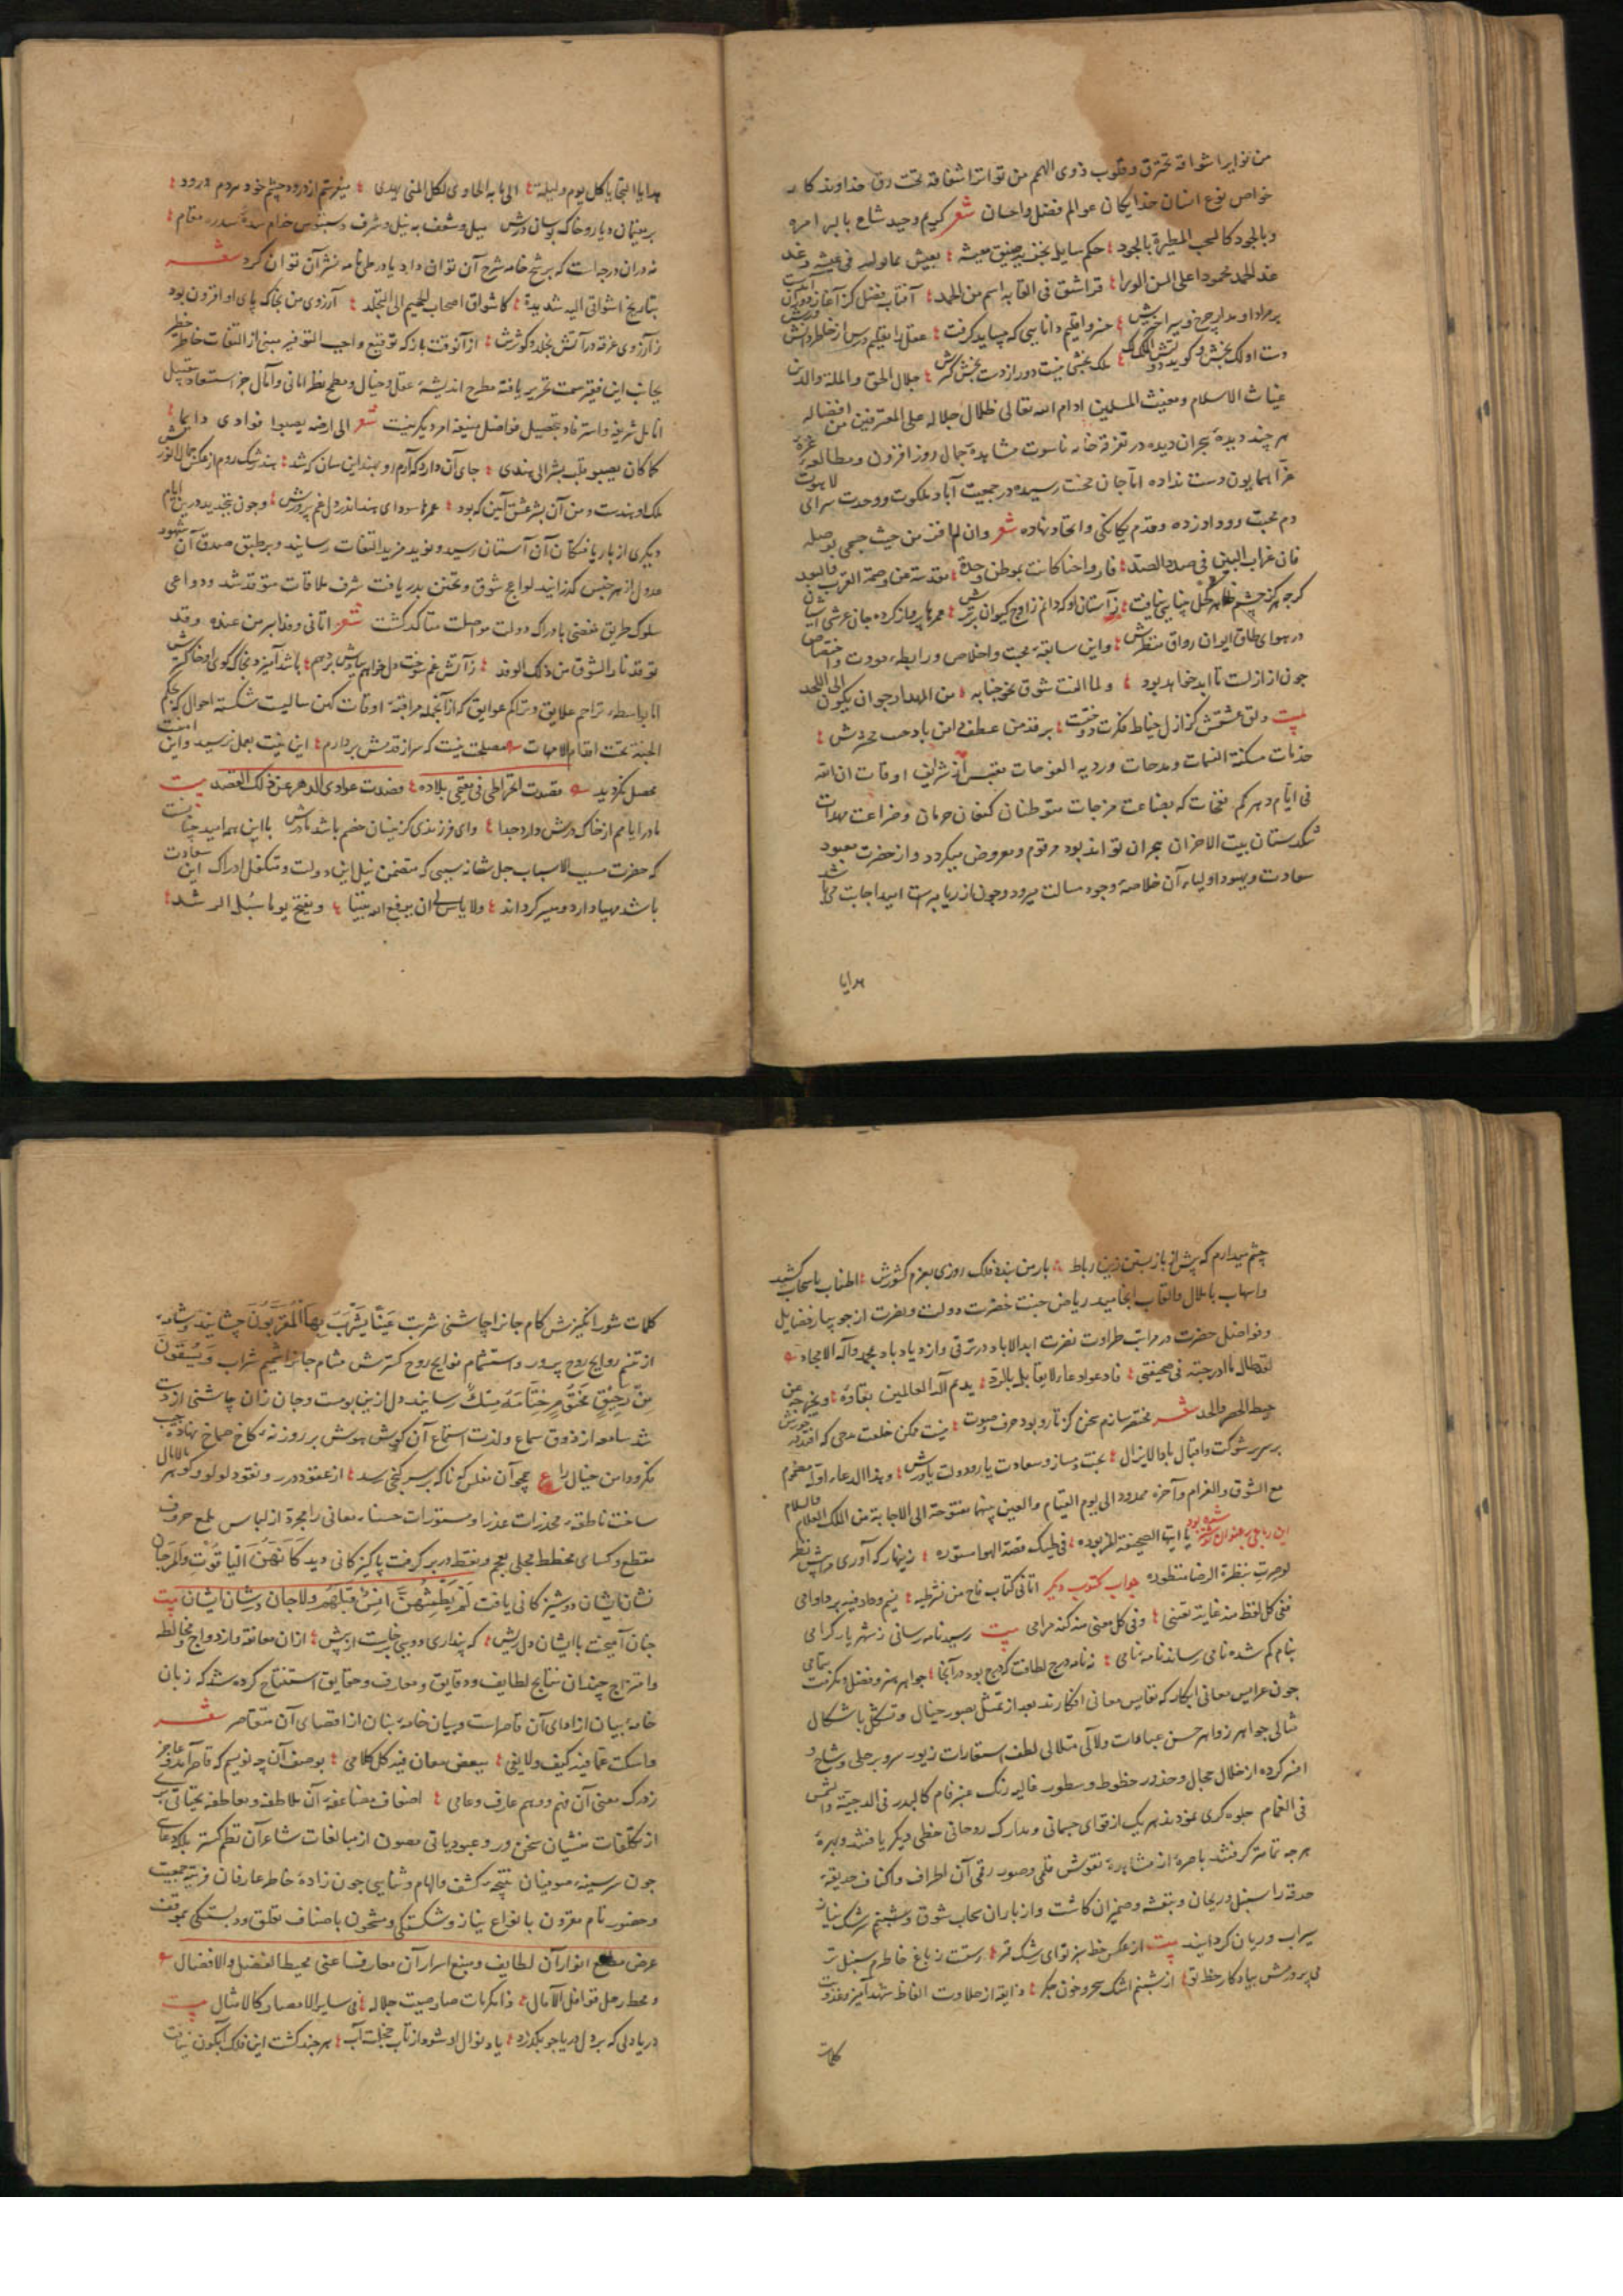 من نوایر اشواقه تحترق وقلوب ذوی الهمم من تواتر اشفاقه تحت رق خداوندکار
خواص نوع انسان خدایکان عوالم فضل واحسان شعر کریم وحید شاع بالبر امره
وبالجود کالسحب المطیرة بالجود حکم سایل بضیق معیشة یعیش بماولیه فی عیشة رغد
غدا لحمد محمودا علی السن الوری قد اشتق فی القابه اسم من الحمد آفتاب فضل کز آغاز دوران
بر مراد او مدار چرخ وسیر اخترش هنر واقلیم دانایی که چساید کرفت عقل را تعلیم درس از خاطر دانش ورش
دست او لک بخش وکوید ملک بخشی نیست دور از دست بخش کترش جلال الحق والملة والدین
غیاث الاسلام ومغیث المسلمین ادام الله تعالی ظلال جلاله علی المعترفین من افضاله
هر چند دیدهٔ هجران دیده در تفرقه خانه ناسوت مشاهدهٔ جمال روز افزون ومطالعهٔ غرهٔ
غرآ همایون دست نداده اما جان محنت رسیده در جمعیت آباد ملکوت ووحدت سرای لاهوت
دم محبت و وداد زده وقدم یکانکی واتحاد نهاده شعر وان لم افز من حیث جسمی بوصله
فان غراب البین فی صدد الصد فارواحنا کانت بموطن وحدة مقدسة عن وصمة القرب والبعد
کرچه هرکز چشم ظاهر کحل بینایی نیافت ز آستان او که دانم زاوج کیوان برترش عمرها پرواز کرده جان عرشی آشیان
در هوای طاق ایوان رواق منظرش واین سابقهٔ محبت واخلاص ورابطهٔ مودت واختصاص
چون از ازلست تا ابد خواهد بود ولما الفت شوق نحو جنابه من المهد ارجو ان یکون الی اللحد
بیت دلق عشقش کز ازل خیاط فکرت دوخت برقد من عطف دامن باد حب محشرش
خدمات مسکیة النسمات ومدحات وردیة الفوحات مقتبس از شرایف اوقات ان لله
فی ایام دهرکم نفحات که بضاعت مزجات متوطنان کنعان حرمان وضراعت مهدات
تنکدستان بیت الاحزان هجران تواند بود مرقوم ومعروض میکردد واز حضرت معبود
سعادت وبهبود اولیاء آن خلاصهٔ وجود مسالت میرود وچون از ریا مبراست امید اجابت می باشد
هدایا
هدایا التحایا کل یوم ولیلة الی بابه الحاوی لکل المنی یهدی میفرستم از درود چشم خود مردم درود
بر مقیمان دیار وخاک بوسان درش میل وشعف به نیل شرف دستبوس خدام سدهٔ سدره مقام
نه دران درجه است که برشح خامه شرح آن توان داد یا در طی نامه نشر آن توان کرد شعر
بتاریخ اشواقی الیه شدیدة کاشواق اصحاب الجحیم الی الخلد آرزوی من بخاک پای او افزون بود
زآرزوی غرقه در آتش بخلد وکوثرش از آنوقت باز که توقیع واجب التوقیر مبنی از التفات خاطر خطیر
بجانب این فقیر سمت تحریر یافته مطرح اندیشهٔ عقل وخیال ومطمح نظر امانی وآمال جز استسعاد بتقبیل
انامل شریفه واسترفاد بتحصیل فواضل منیفه امر دیکر نیست شعر الی ارضه یصبوا فوادی دایما
کما کان یصبو قلب بشر الی هندی جای آن دارد که آرم رو بهند این سان که شد هند رشک روم از عکس جمال انورش
ملک او هندست ومن آن بشر عشق آیین که بود عمرها سودای هند اندر دل غم پرورش وچون بتجدید درین ایام
دیکری از بار یافتکان آن آستان رسید ونوید مزید التفات رسانید وبرطبق صدق آن شهود
عدول از هر جنس کذرانید لواعج شوق وتحنن بدریافت شرف ملاقات متوقد شد ودواعی
سلوک طریق مفضی بادراک دولت مواصلت متاکد کشت شعر اتانی وفد البر من عنده وقد
توقد نار الشوق من ذلک الوفد زآتش غم سوخت دل خواهم بیادش بر دهم باشد آمیزد بخاک کوی او خاکسترش
اما بواسطهٔ تراحم علایق وتراکم عوایق که ازآنجمله مراقبهٔ اوقات کهن سالیست شکسته احوال که بحکم
الجنة تحت اقدام الامهات مصلحت نیست که سر از قدمش بردارم این نیت بعمل نرسید واین امنیت
بحصل نکردید قصدت انخراطی فی مقیمی بلاده فصدت عوادی الدهر عن ذلک القصد بیت
مادر ایامم از خاک درش دارد جدا وای فرزندی کزینسان خصم باشد مادرش بااین همه امید چنانست
که حضرت مسبب الاسباب جل شانه سببی که متضمن نیل این دولت ومتکفل ادراک این سعادت
باشد مهیا دارد ومیسر کرداند ولا یاس لی ان یرفع الله بیننا ویفتح یوما سبل الرشد
چشم میدارم که پیش از باز بستن زین رباط بار من بندد فلک روزی بعزم کشورش اطناب باسحاب کشید
واسهاب باملال والقاب انجامید ریاض جنت حضرت دولت ونضرت از جویبار فضایل
وفواضل حضرت در مراتب طراوت نضرت ابد الاباد در ترقی وازدیاد باد بمحمد وآله الامجاد
لقد طال ما ادرجته فی صحیفتی فادعوا دعاء لا یقابل بالرد یدیم اله العالمین بقاؤه ویخرجه عن
حیطة الحصر والحد شعر مختصر سازم سخن کز تار وپود حرف وصوت نیست ممکن خلعت مدحی که افتد در خورش
برسریر شوکت واقبال بادا لایزال بخت دمساز وسعادت یار ودولت یاورش وهذا الدعاء اوله مضموم
مع الشوق والغرام وآخره ممدود الی یوم القیام والعین بینهما مفتوحة الی الاجابة من الملک العلام والسلام
این رباعی بر عنوان نوشته شده بود یا ایتها الصحیفة المزبوده فی طیک قصة الهوا مستوره زینهار که آوری مرا پیش نظر
لو صرت بنظرة الرضا منظوره جواب مکتوب دیکر اتانی کتاب فاح من نشر طیه نسیم وداد فیه برء اوامی
ففی کل لفظ منه غایة بغیتی وفی کل معنی منه کنه مرامی بیت رسید نامه رسانی ز شهریار کرامی
بنام کم شده نامی رساند نامه نامی نه نامه درج لطافت که درج بود در آنجا جواهر هنر وفضل ومکرمت بتمامی
چون عرایس معانی ابکار که نفایس معانی افکارند بعد از تمثل بصور خیال وتشکل باشکال
مثالی جواهر زواهر حسن عبارات ولآلی متلالی لطف استعارات زیور سر وبر حلی وشاح و
افسر کرده از خلال حجال وخدور خطوط وسطور غالیه رنک عنبر فام کالبدر فی الدجنة والشمس
فی الغمام جلوه کری نمودند هر یک از قوای جسمانی ومدارک روحانی حظی دیکر یافتند وبهرهٔ
هر چه تمامتر کرفتند باصره از مشاهدهٔ نقوش قلمی وصور رقمی آن اطراف واکناف حدیقهٔ
حدقه را سنبل وریحان وبنفشه وضیمران کاشت واز باران سحاب شوق وشبنم سرشک نیاز
سیراب وریان کردانید بیت از عکس خط سبز توای رشک قمر رستست ز باغ خاطرم سنبل تر
می پرورمش بیادکار خط تو از شبنم اشک سحر وخون جکر ذایقه از حلاوت الفاظ شهد آمیز وعذوبت
کلمات
کلمات شور انکیزش کام جانرا چاشنی شربت عینا یشرب بها المقربون چشانید وشامه
از تنسم روایح روح پرور واستشمام نوایح روح کسترش مشام جانرا شمیم شراب ویسقون
من رحیق مختوم ختامه مسک رسانید دل ازین بوست وجان زان چاشنی از دست
شد سامعه از ذوق سماع ولذت استماع آن کوش هوش بر روزنهٔ کاخ صماخ نهاد وجیب
فکر ودامن خیال را ع همچو آن مفلس که ناکه بر سر کنجی رسد از عقود درر ونقود لولو وکوهر مالامال
ساخت ناطقه مخدرات عذرا ومستورات حسناء معانی را مجرد از لباس ملمع حروف
مقطع وکسای مخطط محلی بعجم ونقط در بر کرفت پاکیزکانی دید کانهن الیاقوت والمرجان
نشان ایشان دوشیزکانی یافت لم یطمثهن انس قبلهم ولا جان در شان ایشان بیت
چنان آمیخت با ایشان دل ریش که پنداری دویی برخاست از پیش ازان معانقه وازدواج ومخالطه
وامتزاج چندان نتایج لطایف ودقایق ومعارف وحقایق استنتاج کرده شد که زبان
خامهٔ بیان از ادای آن قاصرست وبیان خامهٔ بنان از اقصای آن متقاصر شعر
وامسکت عما فیه کیف ولا یفی ببعض معان فیه کل کلامی بوصف آن چه نویسم که قاصر آمد وعاجز
زدرک معنی آن فهم ووهم عارف وعامی اضعاف مضاعفهٔ آن ملاطفه ومعاطفه تحیاتی بری
از تکلفات منشیان سخن ور وعبودیاتی مصون از مبالغات شاعران نظم کستر بلکه دعایی
چون سر سینهٔ صوفیان نتیجهٔ کشف والهام وثنایی چون زادهٔ خاطر عارفان قرینهٔ جمعیت
وحضور تام مقرون بانواع نیاز وشکستکی ومشحون باصناف تعلق ودلبستکی بموقف
عرض مطلع انوار آن لطایف ومنبع اسرار آن معارف اعنی محیط الفضل والافضال
ومحط رحل قوافل الآمال فذا مکرمات صار صیت جلاله فی سایر الامصار کالامثال بیت
دریا دلی که بر دل دریا چو بکذرد یاد نوال او شود از تاب خجلت آب هر چند کشت این فلک آبکون نیافت